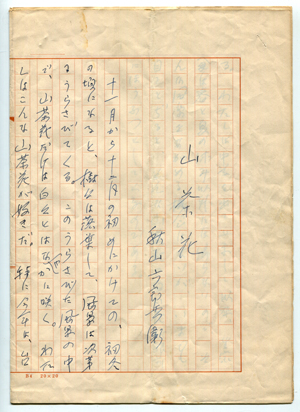 山茶花
秋山六郎兵衛
十一月から十二月の初めにかけての、初冬
の頃になると、樹々は落葉して、風景は次第
にうらさびてくる。このうらさびた風景の中
で、山茶花だけは白々とはなやかに咲く。わた
しはこんな山茶花が好きだ。特に今年は、台